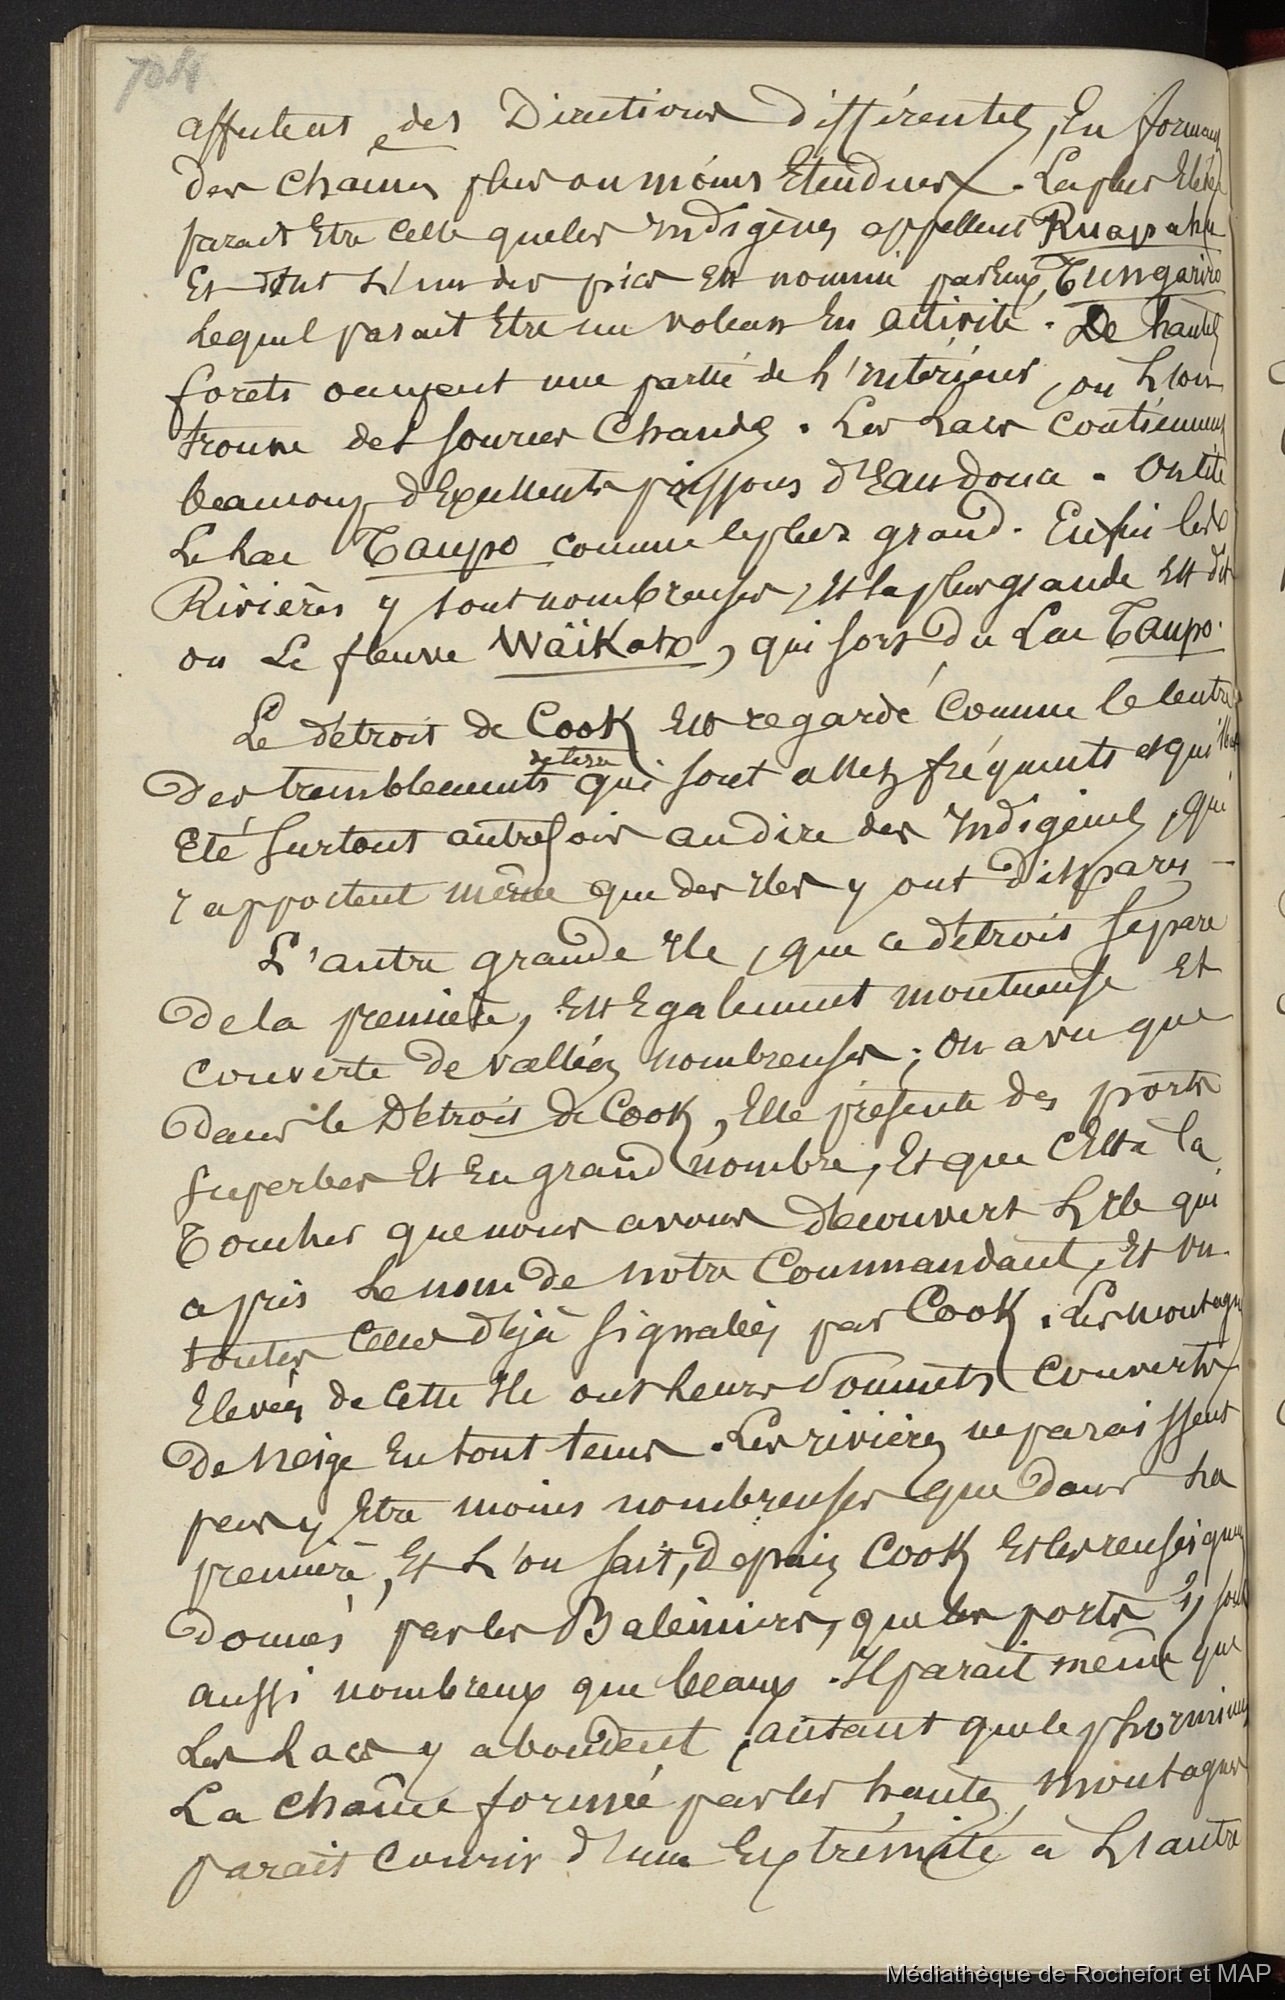 7084
affectent des Directions différentes, En forman
des chaines plus ou moins Etendues. La plus Elevée
parait Etre celle que les indigènes appellent Ruapahu
Et dont L'un des pics Est nommé par Eux, Tungariro
Lequel parait Etre un volcan En activité. De hautes
forets occupent une partie de L'intérieur, ou L'on
trouve des sources Chaudes. Les Lacs contiennent
beaucoup d'Excellents poissons d'Eau douce. On cite
Le Lac Taupo comme le plus grand. Enfin les
Rivières y sont nombreuses, Et la plus grande Est dit
on Le fleuve Wäikato, qui sort du Lac Taupo.
Le détroit de Cook Est regardé Comme le Centre
Des tremblements de terre qui sont assez fréquents et qui l'ont
Eté surtout autrefois au dire des indigènes, qui
rapportent même que des iles y ont disparu —
L'autre grande ile, que ce détroit sépare
De la première, Est Egalement montueuse Et
couverte de vallées nombreuses; On a vu que
dans le Détroit de Cook, Elle présente des ports
superbes Et En grand nombre, Et que C'Est à la
Toucher que nous avons découvert L'ile qui
a pris Le nom de notre Commandant, Et vu
toutes Celles déjà signalées par Cook. Les montagn
Elevées de Cette ile ont leurs sommets Couverts
De Neige En tout tems. Les rivières ne paraissent
pas y Etre moins nombreuses que dans La
première, Et L'on sait, depuis Cook Et les renseignem
donnés par les Baleiniers, que les ports y sont
aussi nombreux que beaux. Il parait même que
Les Lacs y abondent, autant que le phormium
La Chaîne formée par les hautes montagnes
parait Courir d'une Extrémité à L'autre
Médiathèque de Rochefort et MAP